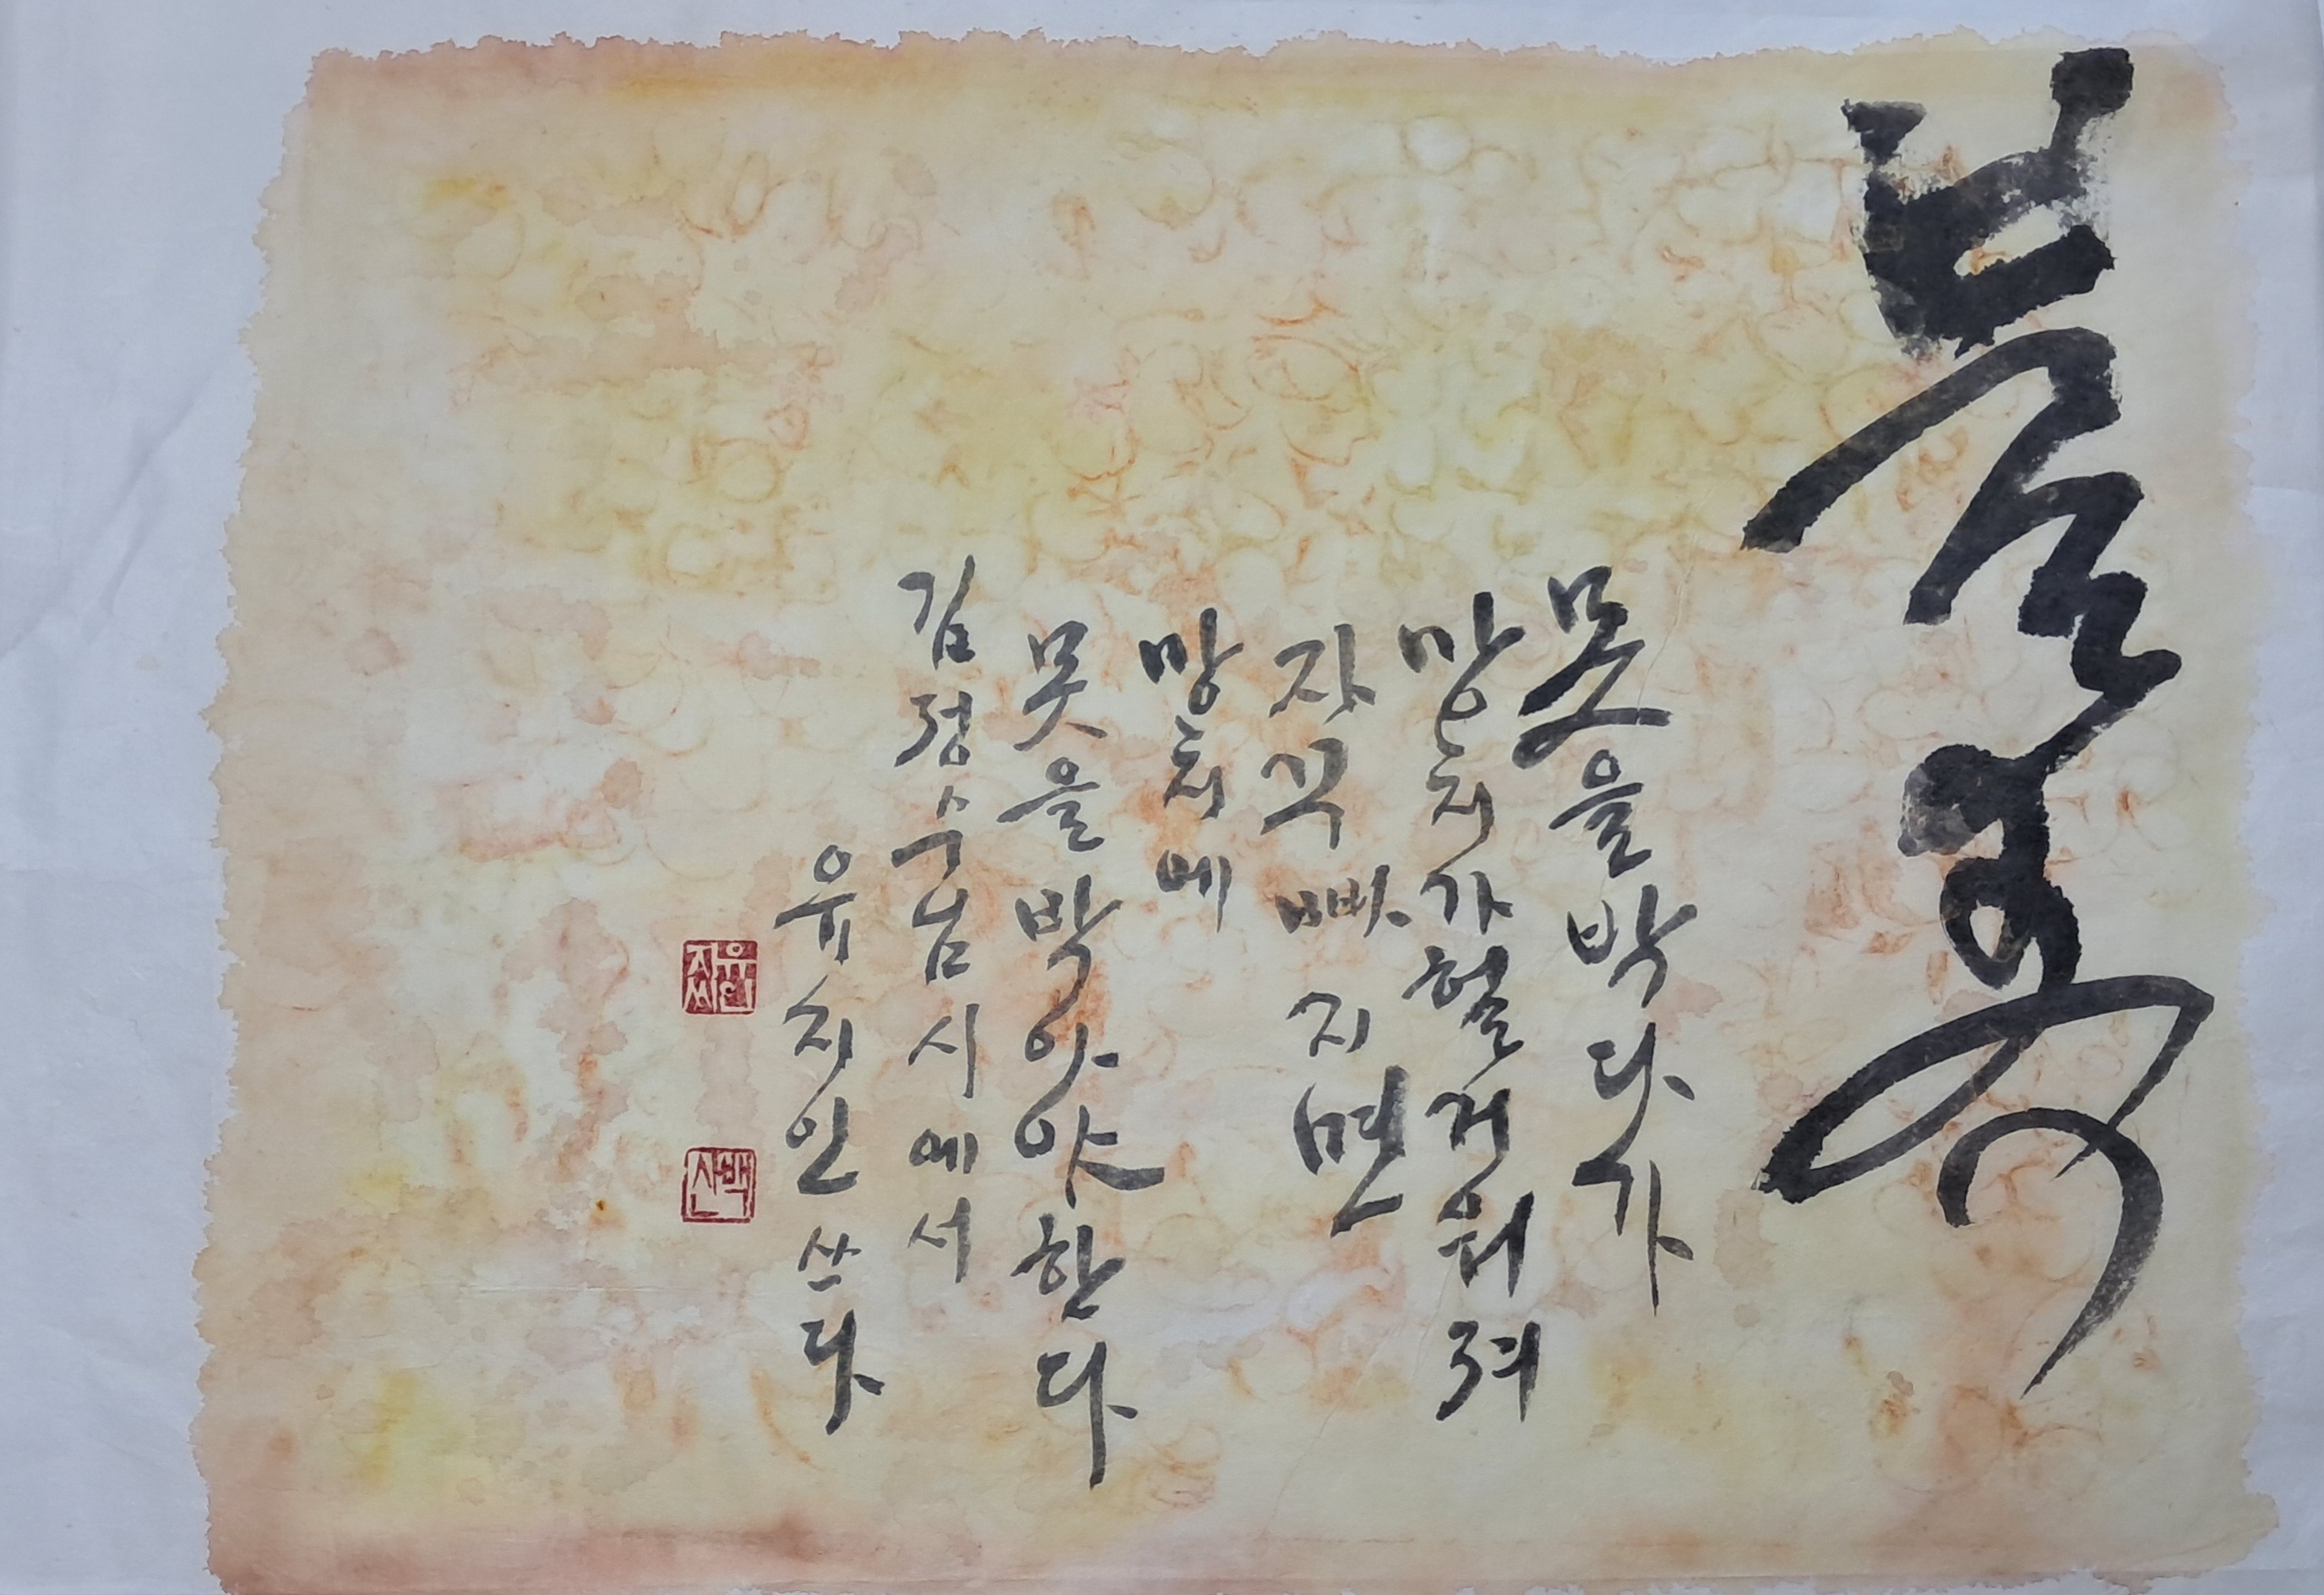 못을 박다가
망치가 헐거워져
자꾸 빠지면
망치에
못을 박아야 한다
김정수 님 시에서
유지인 쓰다
유지인씨
백산